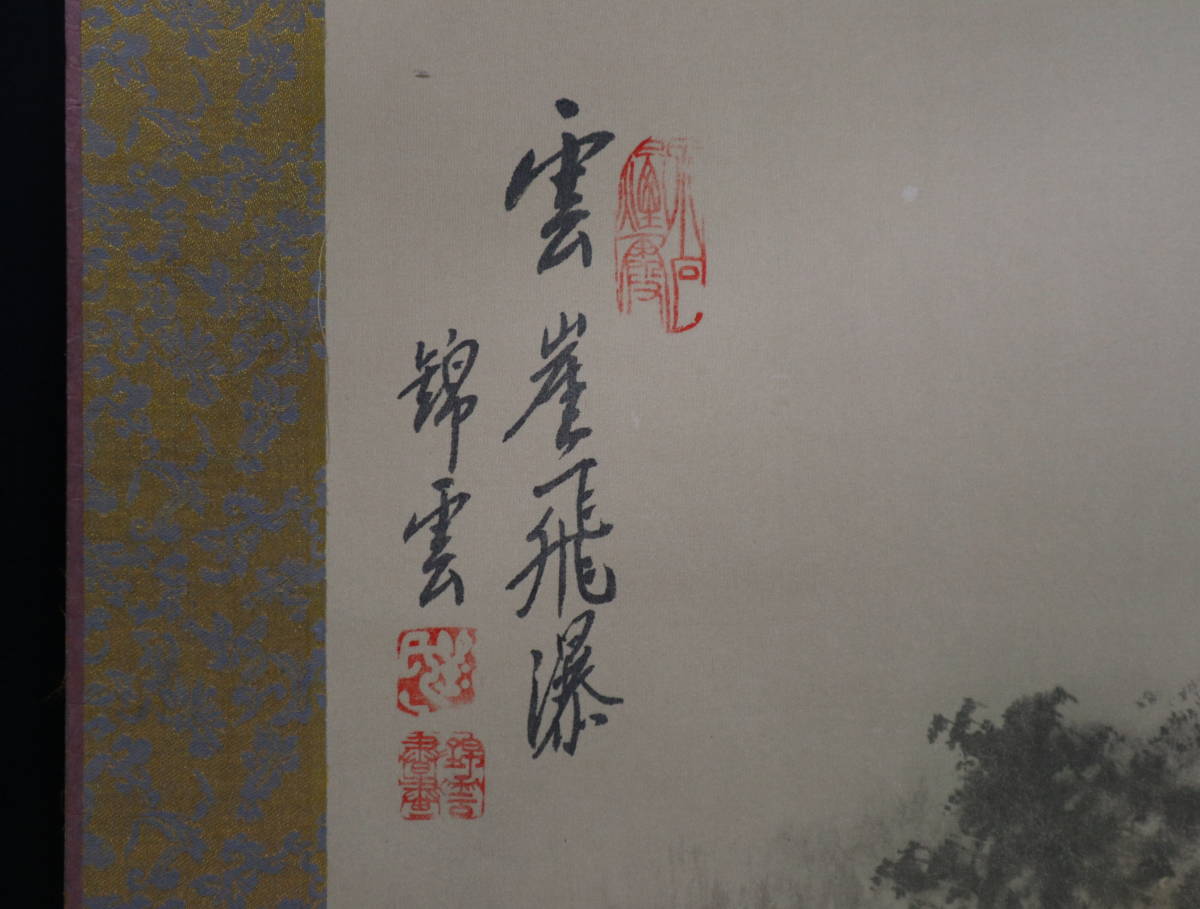 雲崖飛瀑
錦雲
錦雲書畫